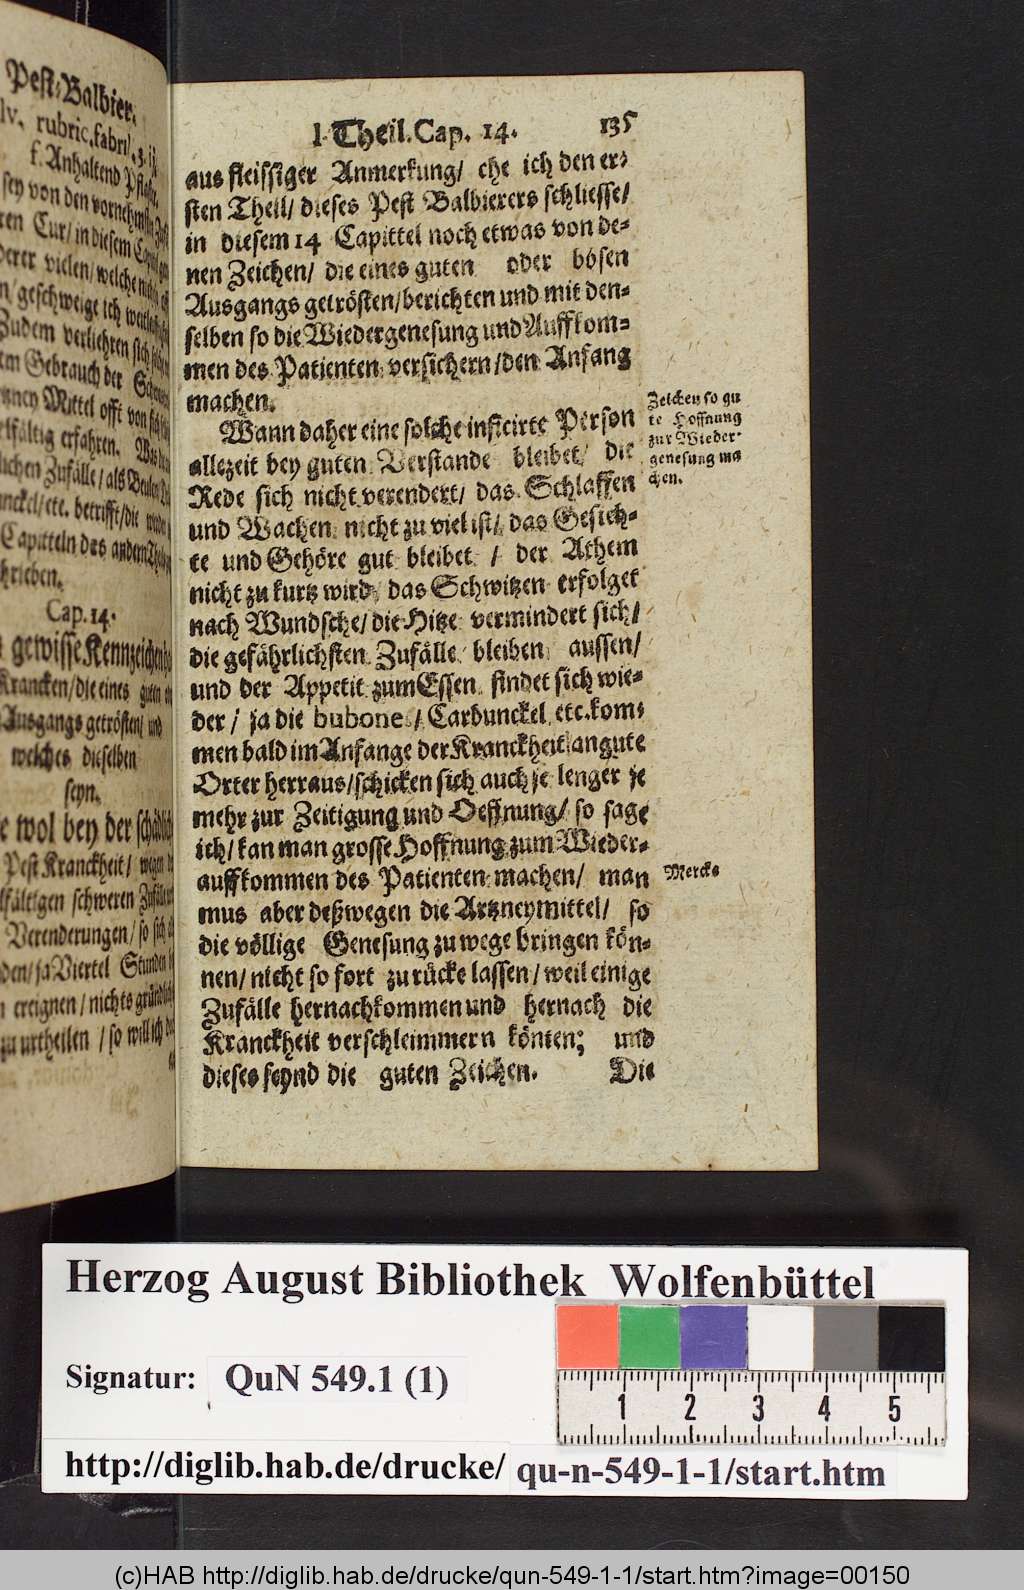 Pest-Balbier.
rubric. fabri
f. Anhaltend
sey von den vornehmsten
Cur/ in diesem
vielen/ welche
geschweige ich
Zudem verliehren sich
Gebrauch der
Mittel offt von
erfahren.
Zufälle/ als
etc. betrifft/ die
Capitteln des andern
Cap. 14.
gewisse Kennzeichen
Krancken/ die eines guten
Ausgangs getrösten/ und
welches dieselben
seyn.
wol bey der
Pest Kranckheit/ wegen
schweren
Verenderungen/ so sich
ja Viertel Stunden
ereignen/ nichts
zu urtheilen/ so will ich
1 Theil. Cap. 14. 135
aus fleissiger Anmerkung/ ehe ich den er-
sten Theil/ dieses Pest Balbierers schliesse/
in diesem 14 Capittel noch etwas von de-
nen Zeichen/ die eines guten oder bösen
Ausgangs getrösten/ berichten und mit den-
selben so die Wiedergenesung und Auffkom-
men des Patienten versichern/ den Anfang
machen.
Wann daher eine solche inficirte Person
allezeit bey guten Verstande bleibet/ die
Rede sich nicht verendert/ das Schlaffen
und Wachen nicht zu viel ist/ das Gesich-
te und Gehöre gut bleibet / der Athem
nicht zu kurtz wird/ das Schwitzen erfolget
nach Wundsche/ die Hitze vermindert sich/
die gefährlichsten Zufälle bleiben aussen/
und der Appetit zum Essen findet sich wie-
der / ja die bubone / Carbunckel etc. kom-
men bald im Anfange der Kranckheit an gute
Orter herraus/ schicken sich auch je lenger je
mehr zur Zeitigung und Oeffnung/ so sage
ich/ kan man grosse Hoffnung zum Wieder-
auffkommen des Patienten machen/ man
mus aber deßwegen die Artzneymittel/ so
die völlige Genesung zu wege bringen kön-
nen/ nicht so fort zu rücke lassen/ weil einige
Zufälle hernachkommen und hernach die
Kranckheit verschleimmern könten; und
dieses seynd die guten Zeichen. Die
Zeichen so gu
te Hoffnung
zur Wieder-
genesung ma
chen.
Mercks
Herzog August Bibliothek Wolfenbüttel
Signatur: QuN 549.1 (1)
1 2 3 4 5
http://diglib.hab.de/drucke/ qu-n-549-1-1/start.htm
(c)HAB http://diglib.hab.de/drucke/qun-549-1-1/start.htm?image=00150